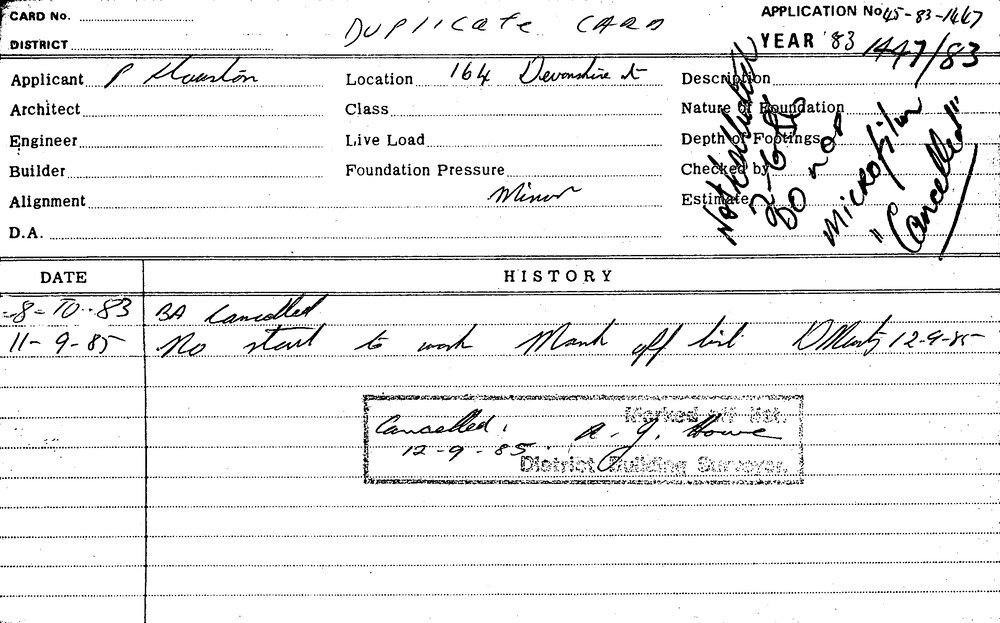 CARD No.
DUPLICATE CARD
APPLICATION No 45-83-1447
DISTRICT
YEAR '83 1447/83
Applicant P Houston
Location 164 Devonshire St
Description
Architect
Class
Nature of Foundation
Engineer
Live Load
Depth of Footings
Builder
Foundation Pressure
Checked by
Alignment
Minor
Estimate
D.A.
2-6-86
DO NOT
MICROfilm
"Cancelled"
DATE
HISTORY
8-10-83 BA Cancelled
11-9-85 No start to work Mark off list 12-9-85
Marked off list.
Cancelled. R. J. Howe
12-9-85
District Building Surveyor.